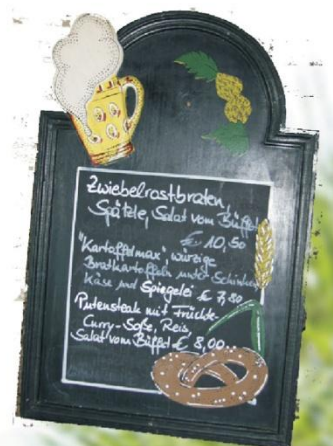 Zwiebelrostbraten,
Spätzle, Salat vom Büffet
€ 10,50
"Kartoffelmax", würzige
Bratkartoffeln unter Schinken,
Käse und Spiegelei € 7,80
Putensteak mit Früchte-
Curry-Soße, Reis,
Salat vom Büffet € 8,00